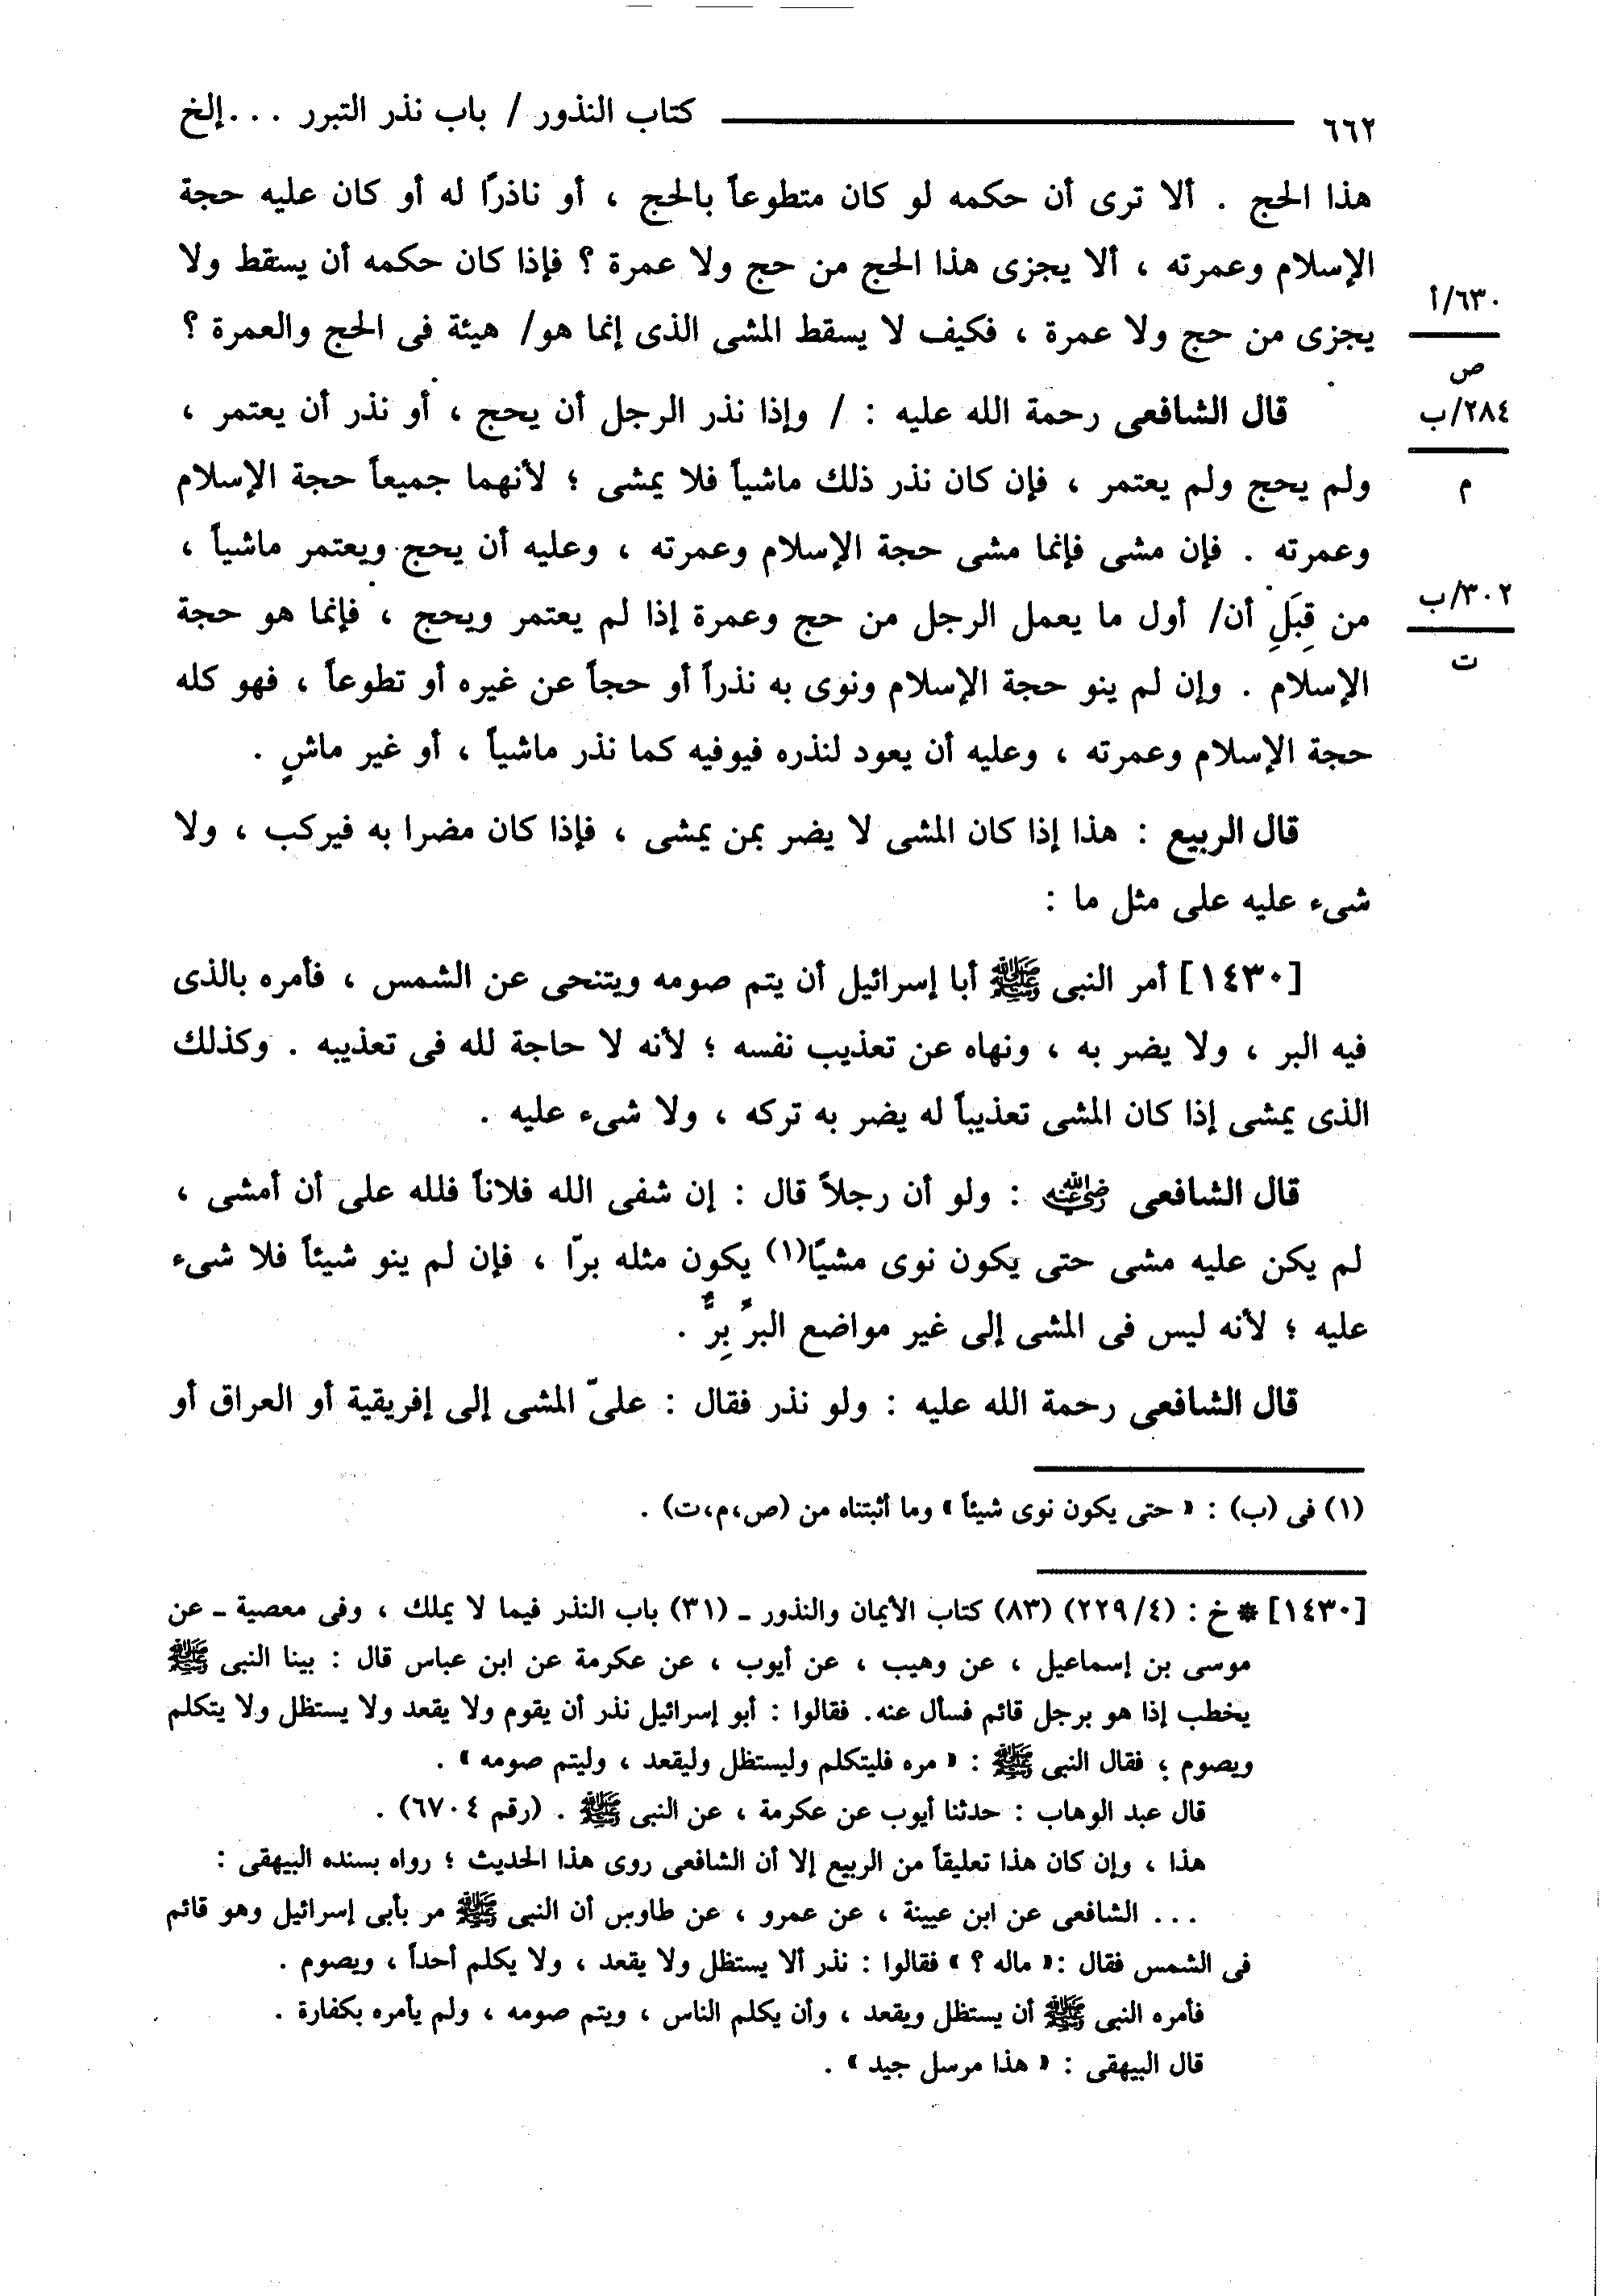 ٦٦٢ كتاب النذور / باب نذر التبرر ...إلخ
هذا الحج . ألا ترى أن حكمه لو كان متطوعاً بالحج ، أو ناذرًا له أو كان عليه حجة
الإسلام وعمرته ، ألا يجزى هذا الحج من حج ولا عمرة ؟ فإذا كان حكمه أن يسقط ولا
٦٣٠/أ
يجزى من حج ولا عمرة ، فكيف لا يسقط المشى الذى إنما هو/ هيئة فى الحج والعمرة ؟
ص
قال الشافعى رحمة الله عليه : / وإذا نذر الرجل أن يحج ، أو نذر أن يعتمر ،
٢٨٤/ب
ولم يحج ولم يعتمر ، فإن كان نذر ذلك ماشياً فلا يمشى ؛ لأنهما جميعاً حجة الإسلام
م
وعمرته . فإن مشى فإنما مشى حجة الإسلام وعمرته ، وعليه أن يحج ويعتمر ماشياً ،
٣٠٢/ب
من قِبَلِ أن/ أول ما يعمل الرجل من حج وعمرة إذا لم يعتمر ويحج ، فإنما هو حجة
ت
الإسلام . وإن لم ينو حجة الإسلام ونوى به نذراً أو حجاً عن غيره أو تطوعاً ، فهو كله
حجة الإسلام وعمرته ، وعليه أن يعود لنذره فيوفيه كما نذر ماشياً ، أو غير ماشٍ .
قال الربيع : هذا إذا كان المشى لا يضر بمن يمشى ، فإذا كان مضرا به فيركب ، ولا
شىء عليه على مثل ما :
[١٤٣٠] أمر النبى ﷺ أبا إسرائيل أن يتم صومه ويتنحى عن الشمس ، فأمره بالذى
فيه البر ، ولا يضر به ، ونهاه عن تعذيب نفسه ؛ لأنه لا حاجة لله فى تعذيبه . وكذلك
الذى يمشى إذا كان المشى تعذيباً له يضر به تركه ، ولا شىء عليه .
قال الشافعى رضي الله عنه : ولو أن رجلاً قال : إن شفى الله فلاناً فلله على أن أمشى ،
لم يكن عليه مشى حتى يكون نوى مشيًا(١) يكون مثله برّا ، فإن لم ينو شيئاً فلا شىء
عليه ؛ لأنه ليس فى المشى إلى غير مواضع البرِّ بِرٌّ .
قال الشافعى رحمة الله عليه : ولو نذر فقال : علىّ المشى إلى إفريقية أو العراق أو
(١) فى (ب) : « حتى يكون نوى شيئاً » وما أثبتناه من (ص،م،ت) .
[١٤٣٠] * خ : (٢٢٩/٤) (٨٣) كتاب الأيمان والنذور ـ (٣١) باب النذر فيما لا يملك ، وفى معصية ـ عن
موسى بن إسماعيل ، عن وهيب ، عن أيوب ، عن عكرمة عن ابن عباس قال : بينا النبى ﷺ
يخطب إذا هو برجل قائم فسأل عنه. فقالوا : أبو إسرائيل نذر أن يقوم ولا يقعد ولا يستظل ولا يتكلم
ويصوم ؛ فقال النبى ﷺ : « مره فليتكلم وليستظل وليقعد ، وليتم صومه » .
قال عبد الوهاب : حدثنا أيوب عن عكرمة ، عن النبى ﷺ . (رقم ٦٧٠٤) .
هذا ، وإن كان هذا تعليقاً من الربيع إلا أن الشافعى روى هذا الحديث ؛ رواه بسنده البيهقى :
... الشافعى عن ابن عيينة ، عن عمرو ، عن طاوس أن النبى ﷺ مر بأبى إسرائيل وهو قائم
فى الشمس فقال :« ماله ؟ » فقالوا : نذر ألا يستظل ولا يقعد ، ولا يكلم أحداً ، ويصوم .
فأمره النبى ﷺ أن يستظل ويقعد ، وأن يكلم الناس ، ويتم صومه ، ولم يأمره بكفارة .
قال البيهقى : « هذا مرسل جيد » .